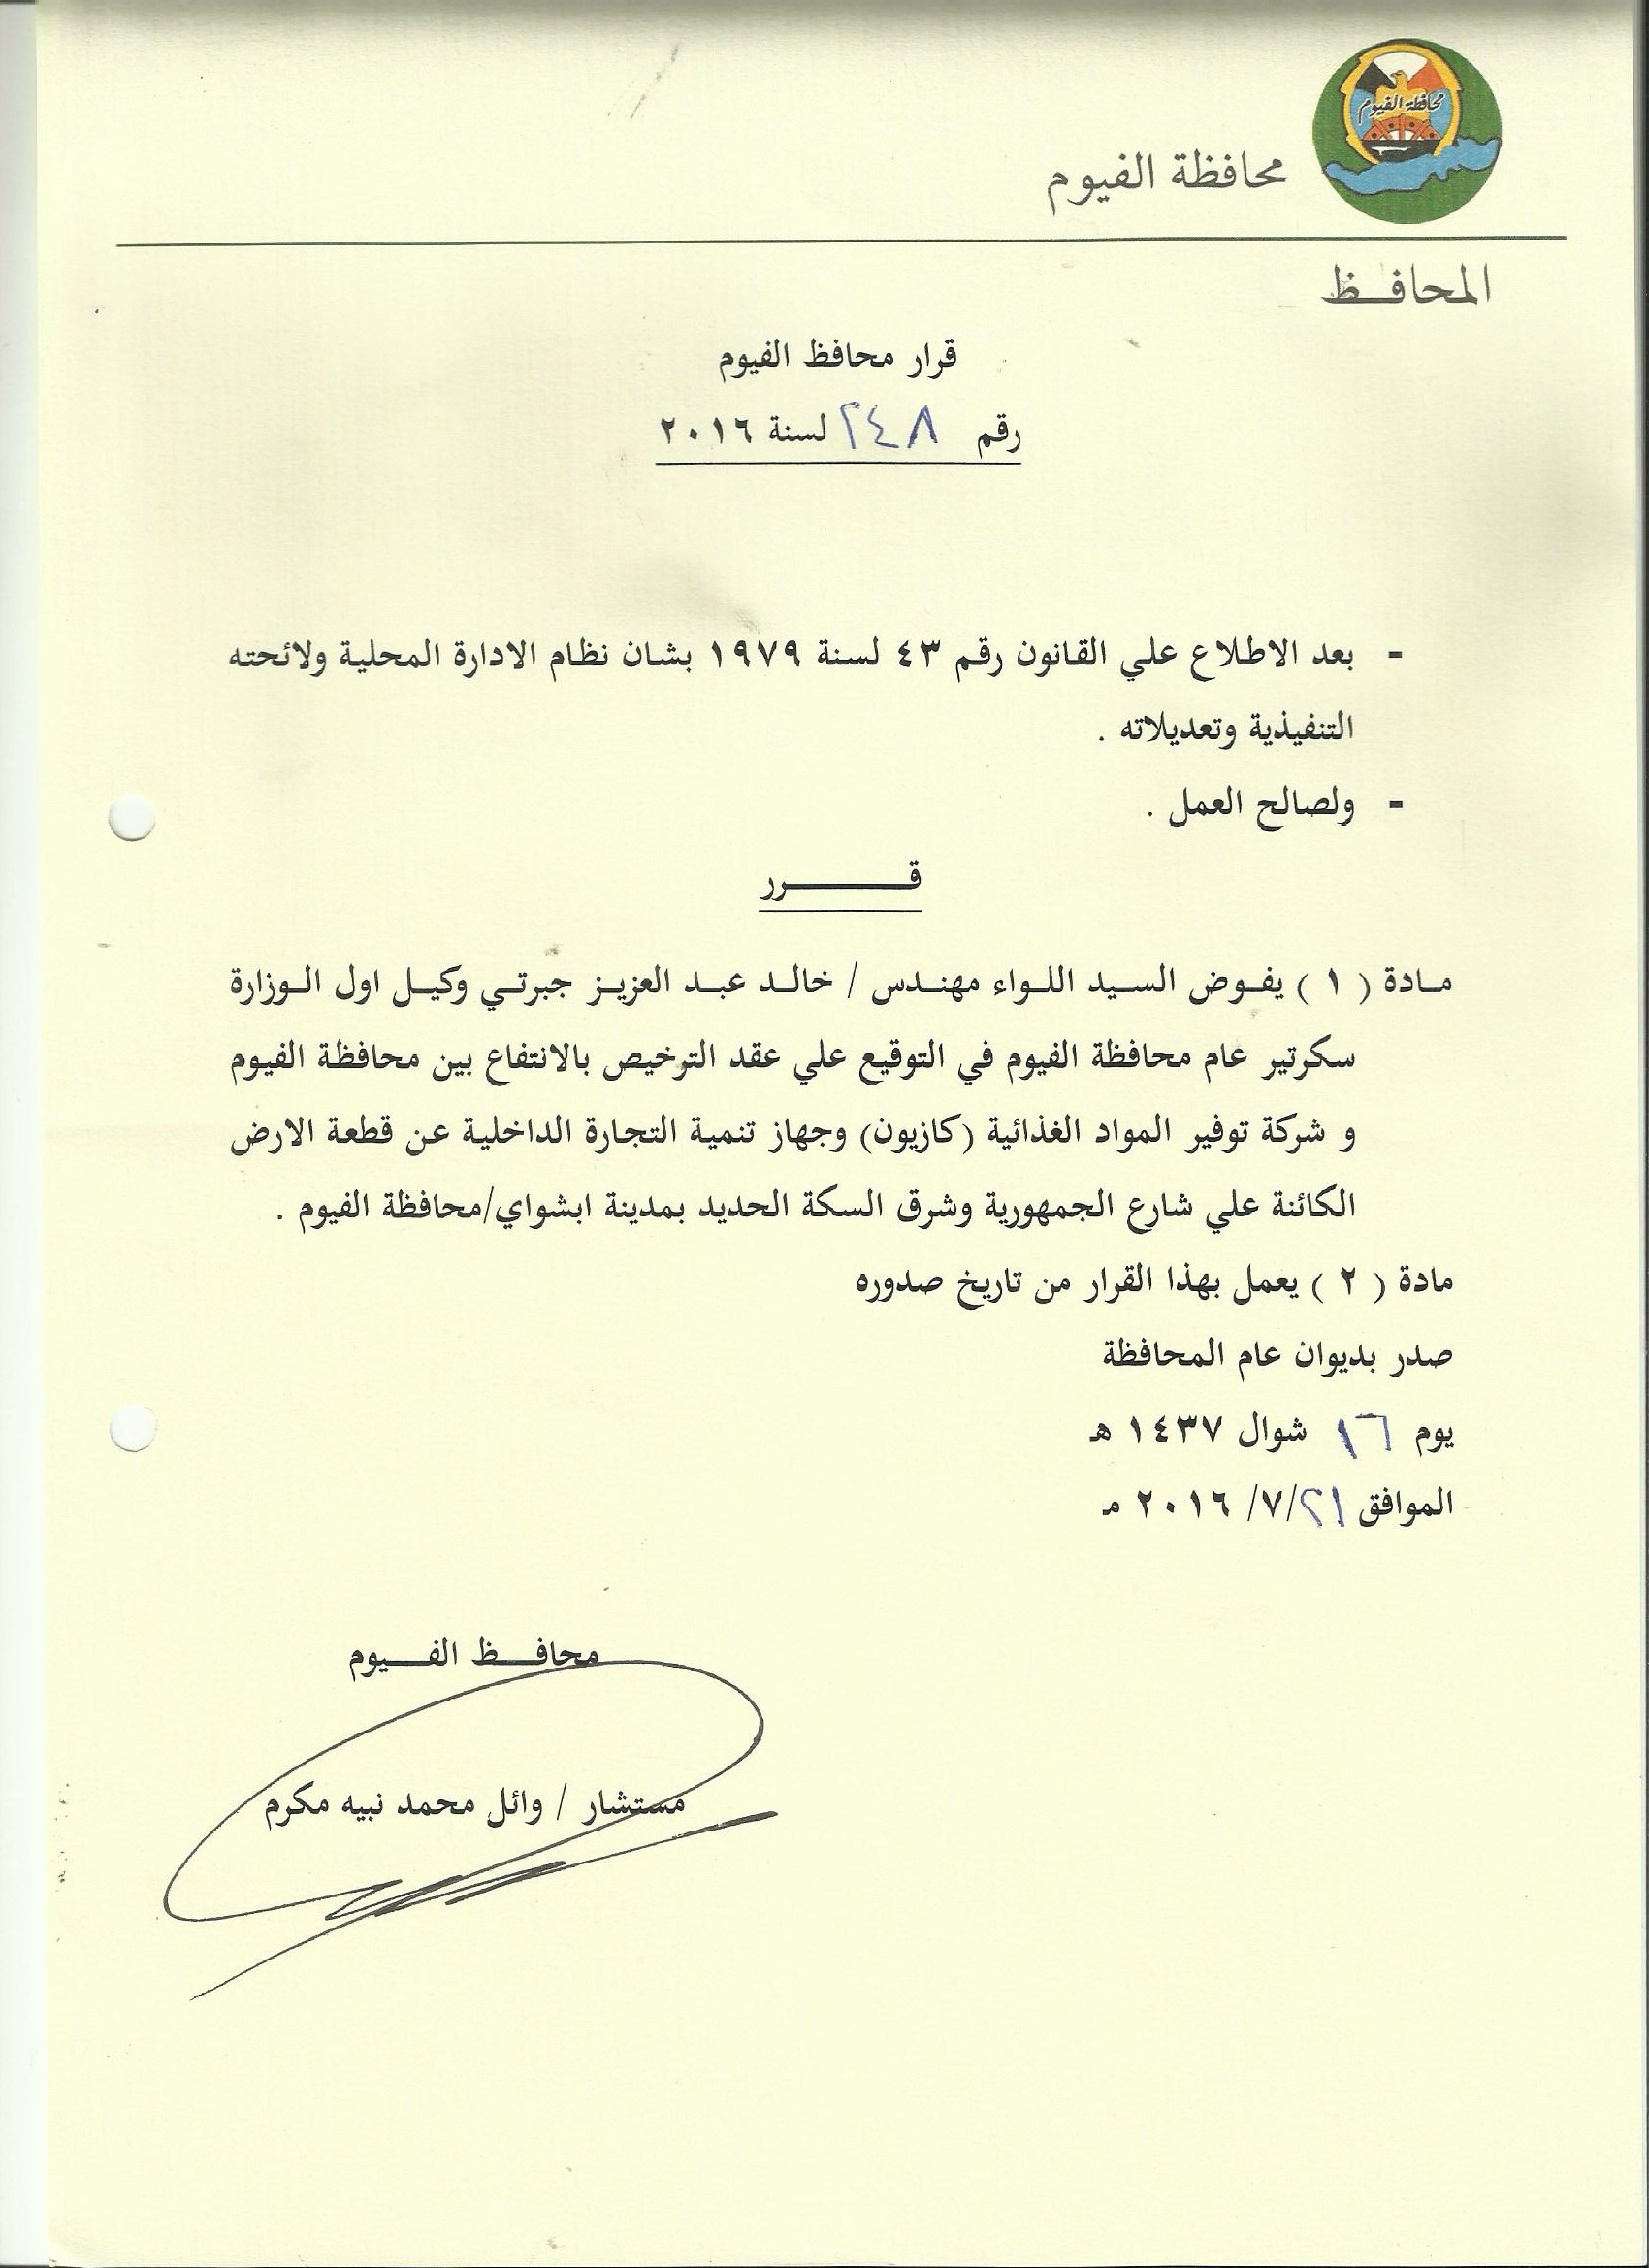 محافظة الفيوم
محافظة الفيوم
المحافـــظ
قرار محافظ الفيوم
رقم ٢٤٨ لسنة ٢٠١٦
- بعد الاطلاع علي القانون رقم ٤٣ لسنة ١٩٧٩ بشان نظام الادارة المحلية ولائحته
التنفيذية وتعديلاته .
- ولصالح العمل .
قـــــــــرر
مـادة ( ١ ) يفـوض السـيد اللـواء مهنـدس / خالـد عبـد العزيـز جبرتـي وكيـل اول الـوزارة
سكرتير عام محافظة الفيوم في التوقيع علي عقد الترخيص بالانتفاع بين محافظة الفيوم
و شركة توفير المواد الغذائية (كازيون) وجهاز تنمية التجارة الداخلية عن قطعة الارض
الكائنة علي شارع الجمهورية وشرق السكة الحديد بمدينة ابشواي/محافظة الفيوم .
مادة ( ٢ ) يعمل بهذا القرار من تاريخ صدوره
صدر بديوان عام المحافظة
يوم ١٦ شوال ١٤٣٧ هـ
الموافق ٢١/٧/ ٢٠١٦ مـ
محافـــظ الفـــيوم
مستشار / وائل محمد نبيه مكرم